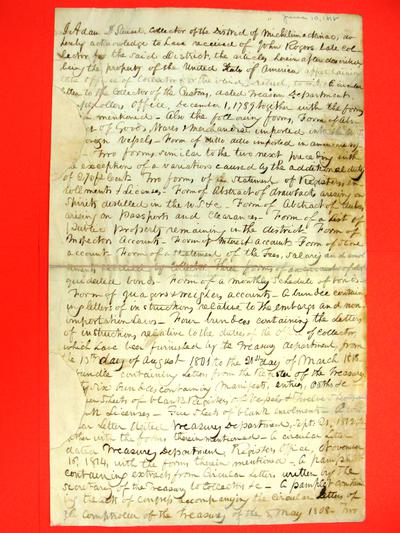 June 10, 1818
I Adam D Steuart Collector of the District of Michilimackinac, do
hereby acknowledge to have received of John Rogers late col-
lector for the said District, the articles herein after described
being the property of the United States of America, appertaining
to the office of Collector
letter to the Collector of the Customs, dated Treasury Department
Comptrollers Office, December 1, 1789 together with the forms
mentioned - Also the following forms, Form of abs-
of Goods, Wares & Merchandise imported
foreign Vessels - Form of ditto ditto imported in american
- Two forms similar to the two next preceding with
exception of a variation caused by the additional duty
of 2½ per Cent. Two forms of a Statement of Registers, en-
rollments & Licenses - Form of Abstract of drawback arising on
Spirits distilled in the U.S. &c. Form of Abstract of duties
arising on Passports and Clearances - Form of a list of
Public property remaining in the district. Form of
Inspector Account - Form of Interest account. Form of Store
account. Form of a statement of the Fees, Salary and emol-
uments received by Collector. Three forms of
bonds - Form of a monthly Schedule of Bonds
Form of guagers & weighers accounts - A bundle contain-
ing letters of instructions relative to the embargo and non
importation Laws - Four bundles containing the letters
of instructions, relative to the duties of the office of collector,
which have been furnished by the Treasury department from
the 15th day of August 1801 to the 21st day of March 1818
bundle containing letters from the Register of the Treasury
Six bundles containing Manifests, entries, Oaths &c
Sheets of blank Registers of Vessels &
Licenses - Five Sheets of blank enrolments -
Letter United Treasury Department, Sept 21, 1813 to-
gether with the forms therein mentioned - A circular Letter
dated Treasury Department, Registers Office, November
15, 1814, with the form therein mentioned - A pamphlet
containing extracts from Circular Letters, written by the
Secretary of the Treasury to Collectors &c - A pamphlet contain-
ing the acts of Congress accompanying the Circular Letters of
the Comptroller of the Treasury of the 5 May 1808 - Two